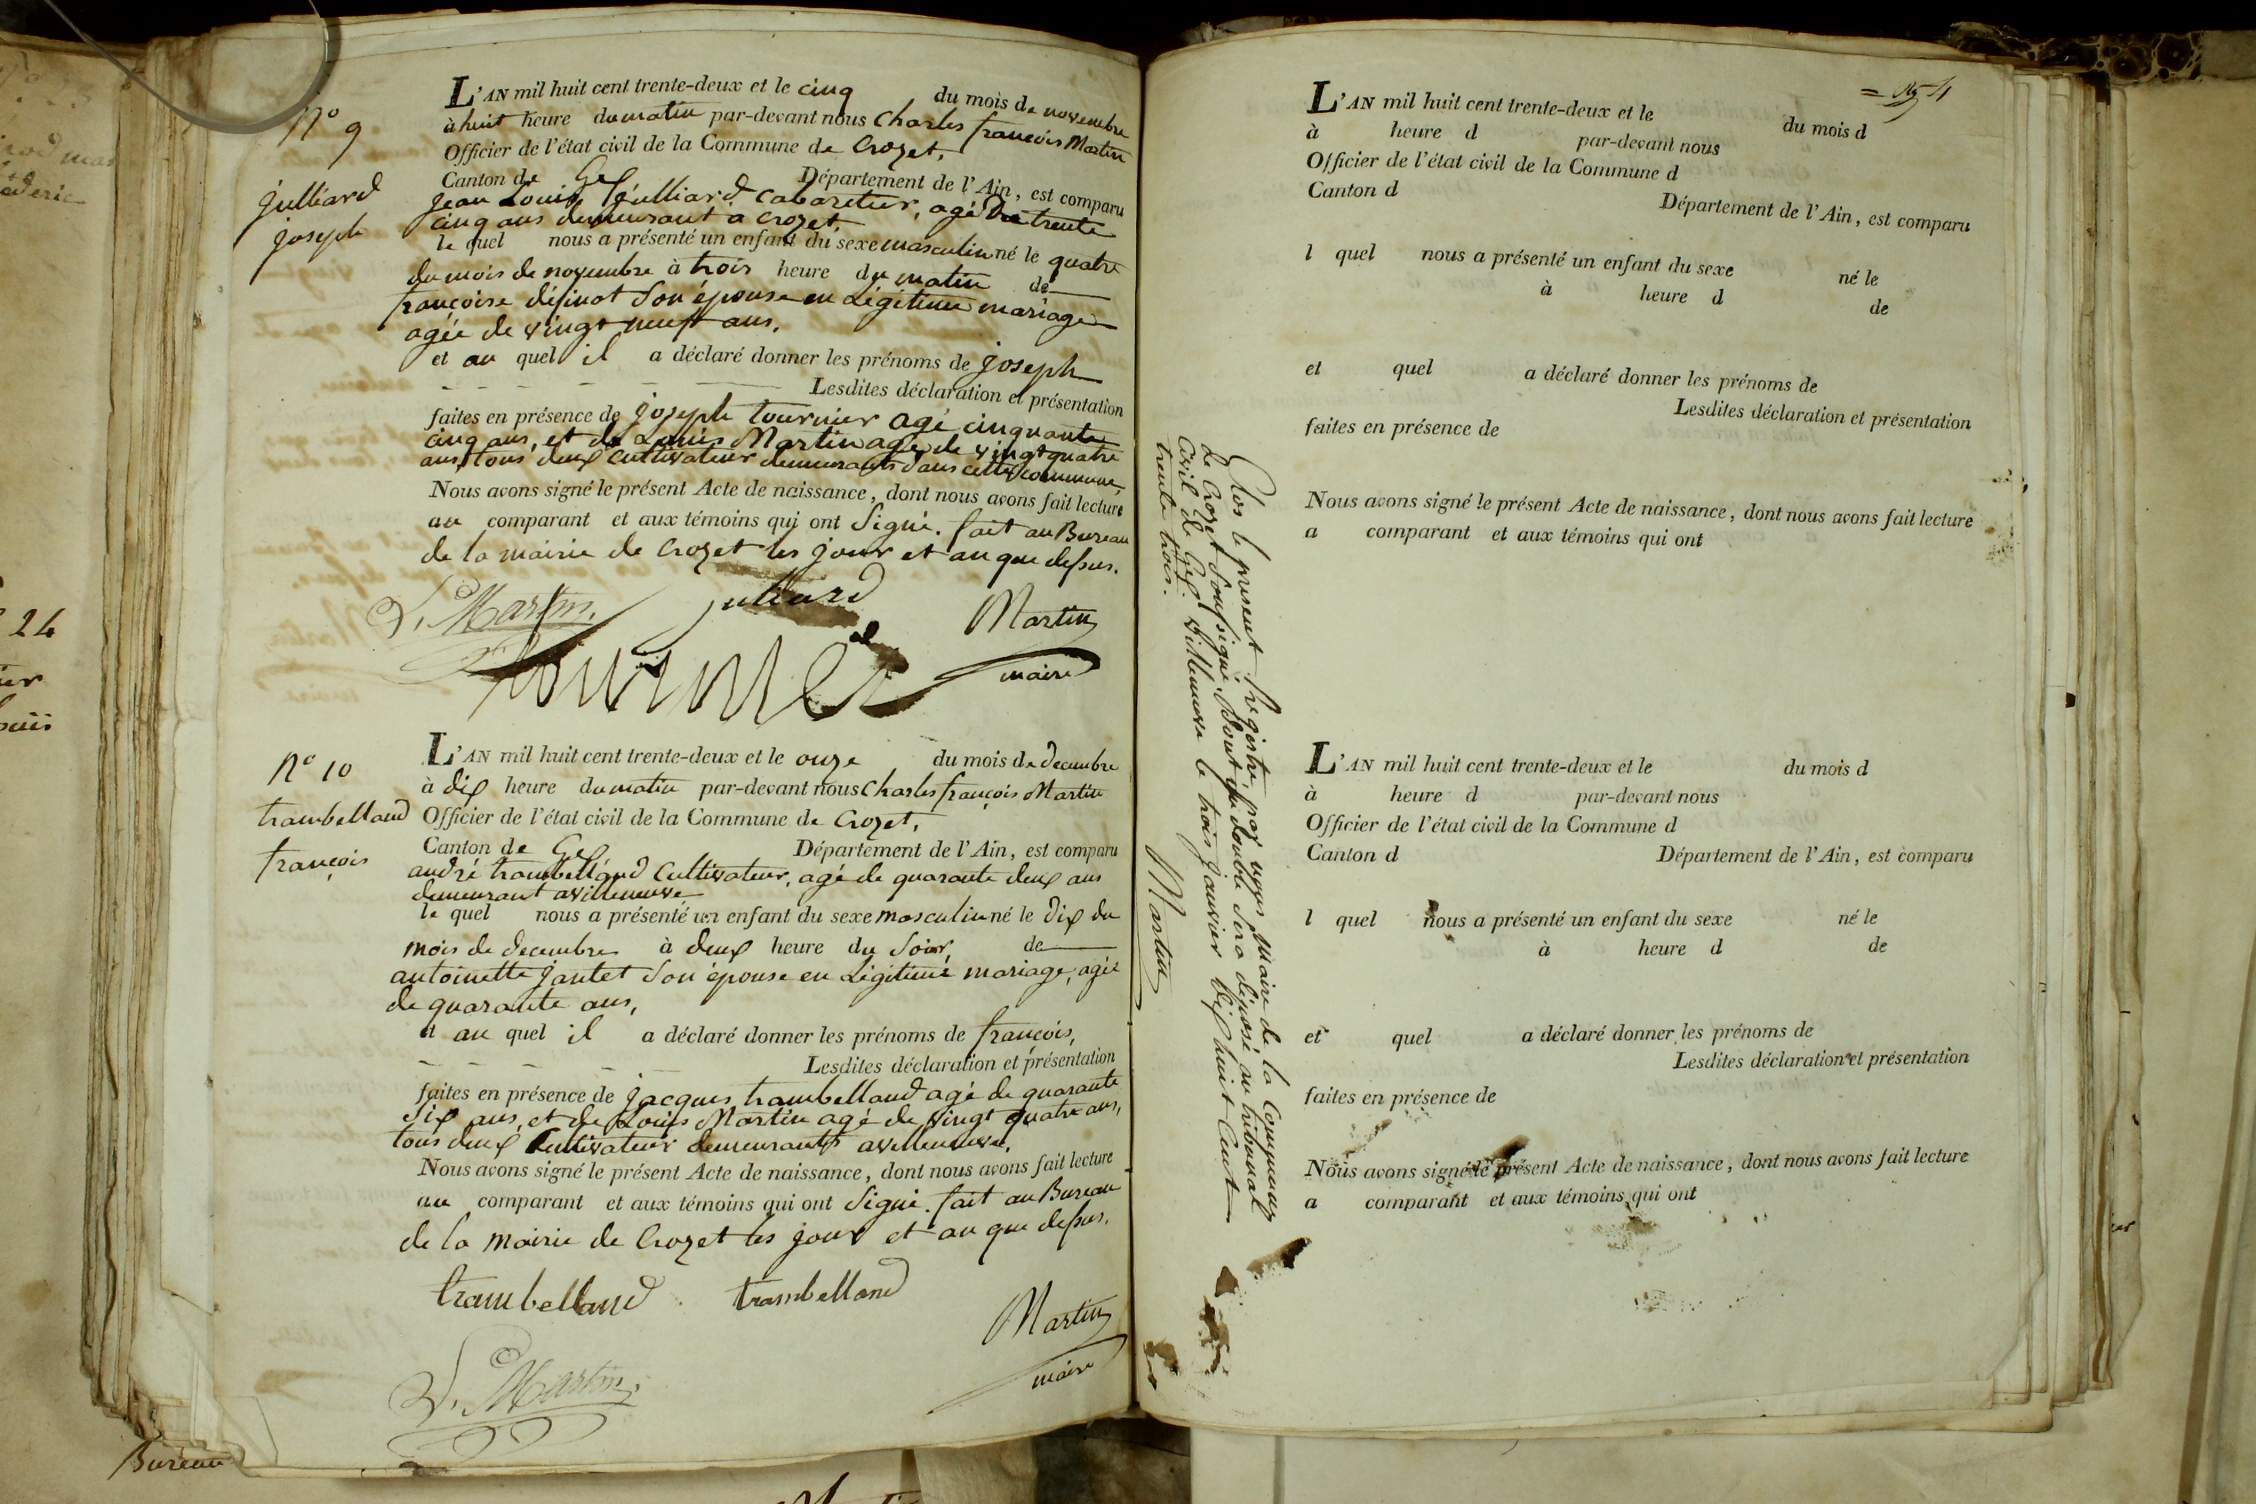 N° 9
julliard
joseph
L'AN mil huit cent trente-deux et le cinq du mois de novembre
à huit heure du matin par-devant nous Charles françois Martin
Officier de l'état civil de la Commune de Crozet,
Canton de Gex Département de l'Ain, est comparu
jean Louis julliard cabaretier, agé de trente
cinq ans demeurant a crozet,
le quel nous a présenté un enfant du sexe masculin né le quatre
du mois de novembre à trois heure du matin de
françoise définot son épouse en Légitime mariage
agée de vingt neuf ans,
et au quel il a déclaré donner les prénoms de joseph
Lesdites déclaration et présentation
faites en présence de joseph tournier agé cinquante
cinq ans, et de Louis Martin agé de vingt quatre
ans, tous deux cultivateur demeurants dans cette commune,
Nous avons signé le présent Acte de naissance, dont nous avons fait lecture
au comparant et aux témoins qui ont Signé. fait au Bureau
de la mairie de Crozet les jour et an que dessus.
L. Martin. julliard Martin
tournier maire
N° 10
trambelland
françois
L'AN mil huit cent trente-deux et le onze du mois de decembre
à dix heure du matin par-devant nous Charles françois Martin
Officier de l'état civil de la Commune de Crozet,
Canton de Gex Département de l'Ain, est comparu
andré trambelland Cultivateur, agé de quarante deux ans
demeurant a villeneuve
le quel nous a présenté un enfant du sexe masculin né le dix du
mois de decembre à deux heure du Soir, de
antoinette jantet Son épouse en Légitime mariage, agée
de quarante ans,
et au quel il a déclaré donner les prénoms de françois,
Lesdites déclaration et présentation
faites en présence de jacques trambelland agé de quarante
Six ans, et de Louis Martin agé de vingt quatre ans,
tous deux Cultivateur demeurants a villeneuve,
Nous avons signé le présent Acte de naissance, dont nous avons fait lecture
au comparant et aux témoins qui ont Signé. fait au Bureau
de la mairie de Crozet les jour et an que dessus.
trambelland trambelland Martin
L. Martin. maire
Bureau
Clos le présent Régistre, par nous Maire de la Commune
de Crozet Soussigné, Dont un double Sera déposé au tribunal
Civil de Gex. Villeneuve le trois janvier dix huit Cent
trente trois.
Martin
L'AN mil huit cent trente-deux et le du mois d
à heure d par-devant nous
Officier de l'état civil de la Commune d
Canton d Département de l'Ain, est comparu
l quel nous a présenté un enfant du sexe né le
à heure d de
et quel a déclaré donner les prénoms de
Lesdites déclaration et présentation
faites en présence de
Nous avons signé le présent Acte de naissance, dont nous avons fait lecture
a comparant et aux témoins qui ont
L'AN mil huit cent trente-deux et le du mois d
à heure d par-devant nous
Officier de l'état civil de la Commune d
Canton d Département de l'Ain, est comparu
l quel nous a présenté un enfant du sexe né le
à heure d de
et quel a déclaré donner les prénoms de
Lesdites déclaration et présentation
faites en présence de
Nous avons signé le présent Acte de naissance, dont nous avons fait lecture
a comparant et aux témoins qui ont